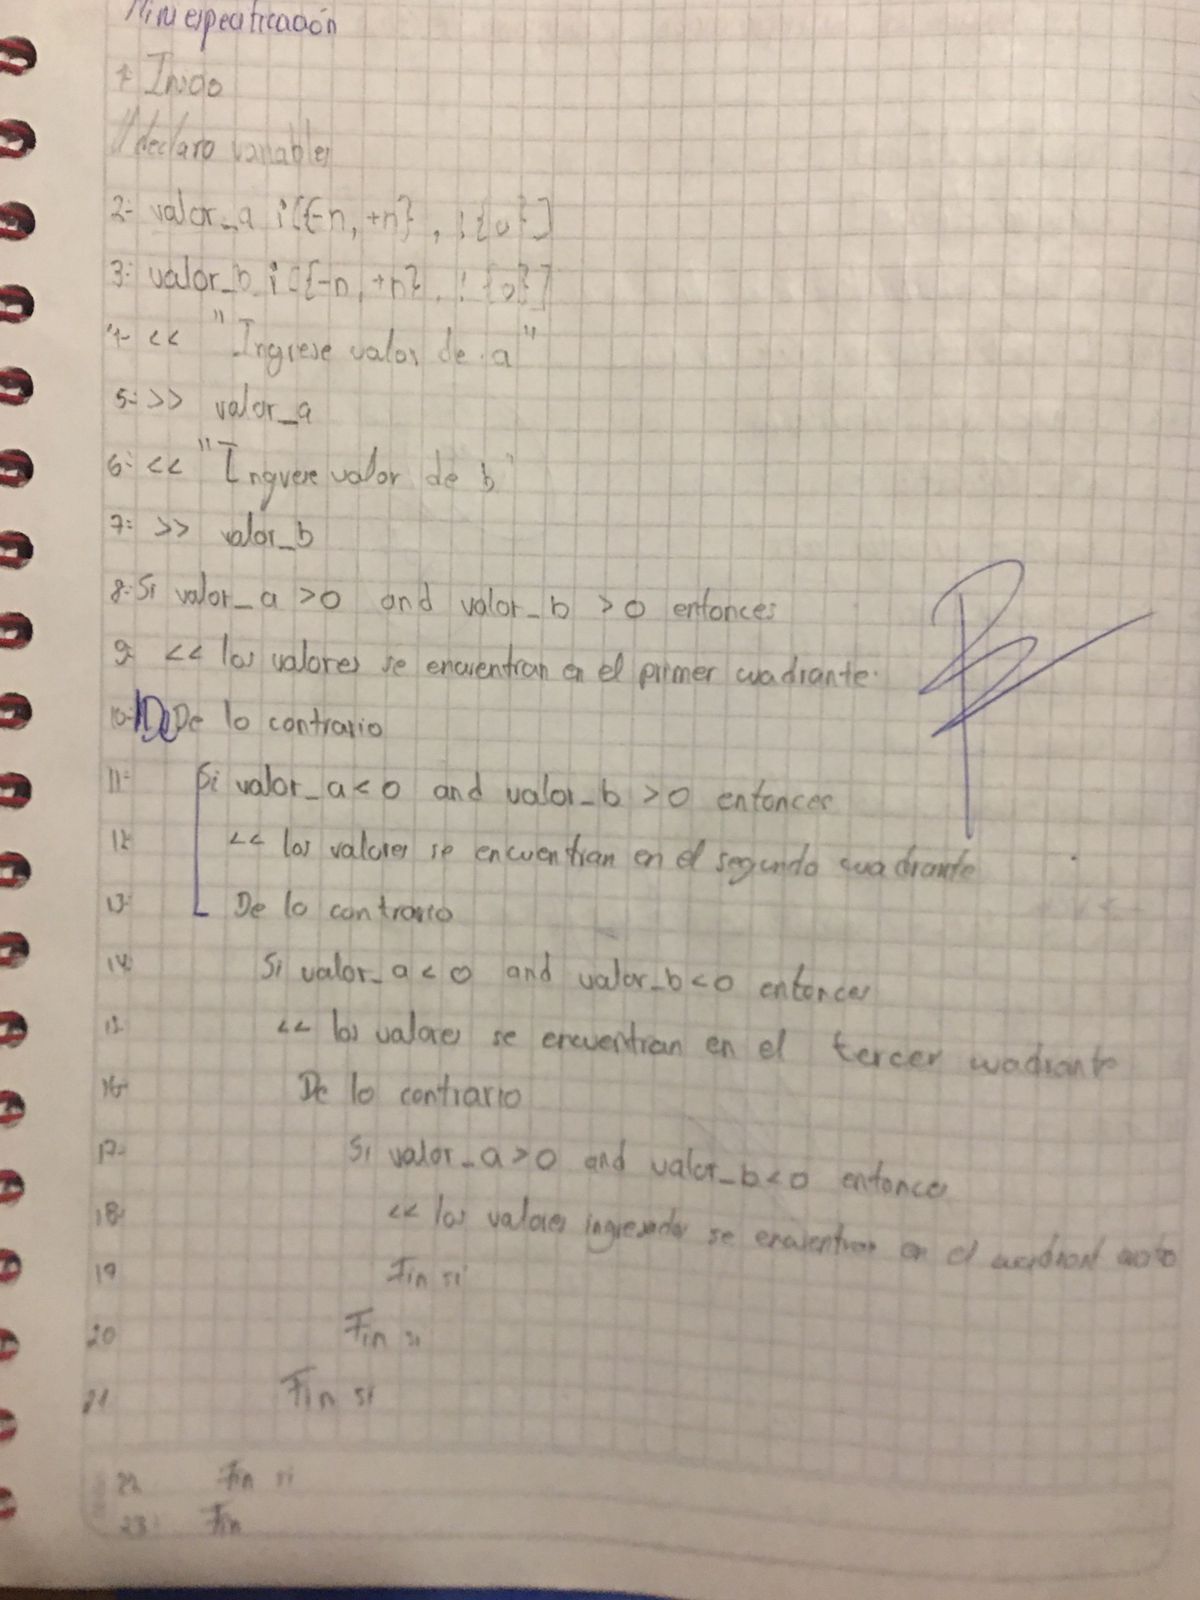 Miniespecificación
1- Inicio
// declaro variables
2- valor_a i[{-n, +n}, !{0}]
3- valor_b i[{-n, +n}, !{0}]
4- << "Ingrese valor de a"
5- >> valor_a
6- << "Ingrese valor de b"
7- >> valor_b
8- Si valor_a >0 and valor_b >0 entonces
9- << los valores se encuentran en el primer cuadrante.
10- De lo contrario
11- Si valor_a<0 and valor_b >0 entonces
12- << los valores se encuentran en el segundo cuadrante
13- De lo contrario
14- Si valor_a<0 and valor_b<0 entonces
15- << los valores se encuentran en el tercer cuadrante
16- De lo contrario
17- Si valor_a>0 and valor_b<0 entonces
18- << los valores ingresados se encuentran en el
19 Fin si
20 Fin si
21 Fin si
22 Fin si
23- Fin